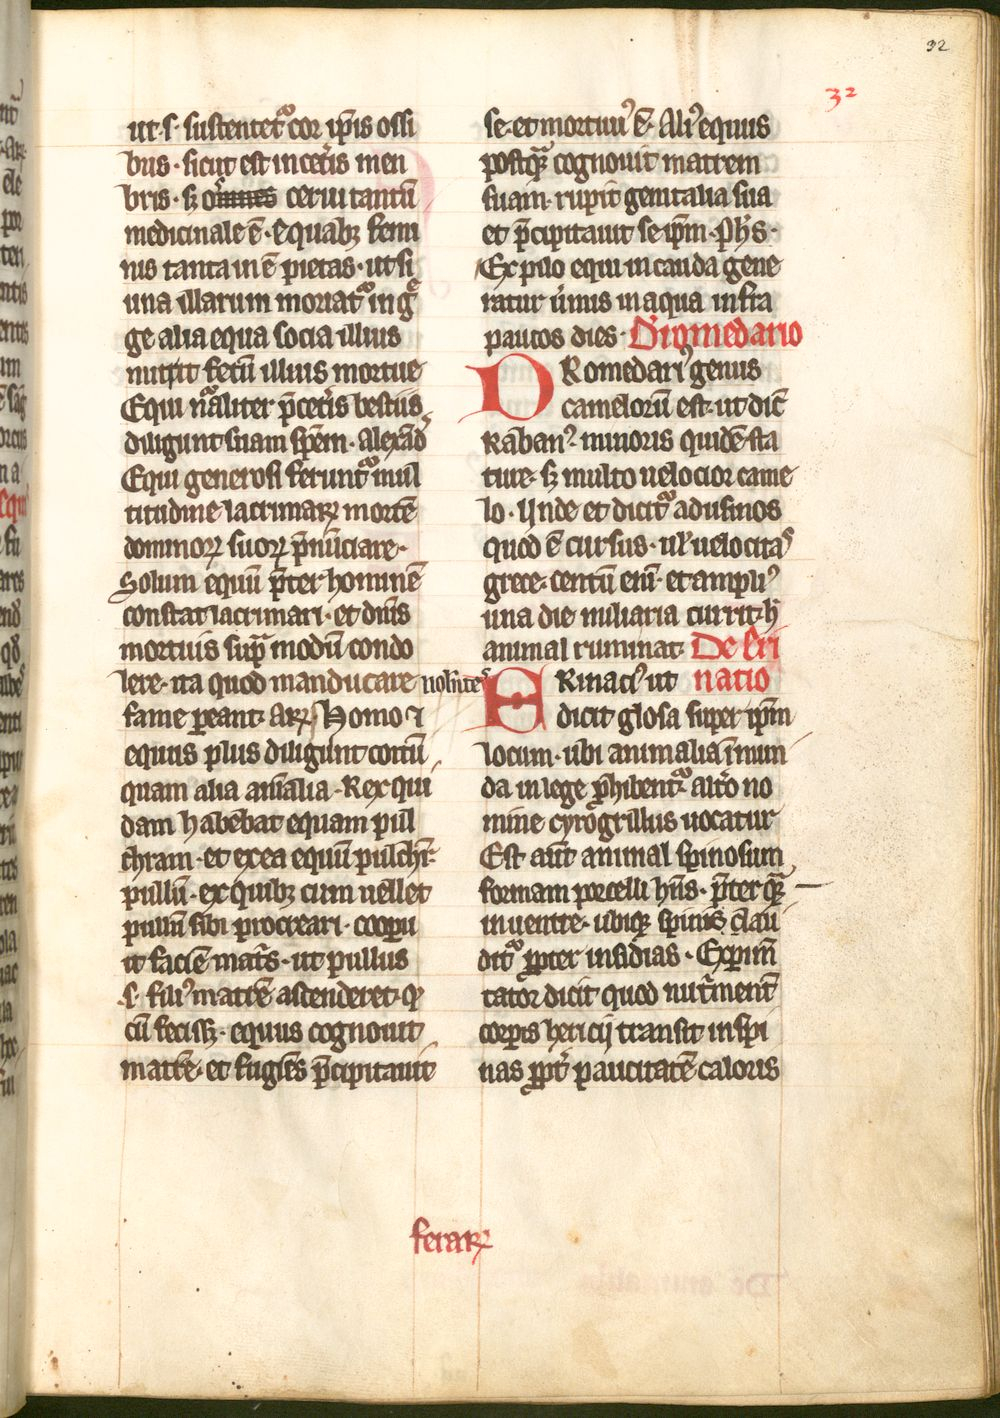 32
32
ut .s. sustentet᷑ cor ip̅is ossi
bus · sicut est in cet̕is men
bris · sꝫ o̅m̅nes cerui tantū
medicinale ē · Equabꝫ femi
nis tanta in ē pietas · ut si
una illarum moriat᷑ in gͤ
ge alia equa socia illius
nutrit fetū illius mortue
Equi nāliter p̄cet̕is bestiis
diligunt suam sp̅em · alexād̕
Equi generosi ferunt᷑ mul
titudine lacrimaꝝ mortē
dominoꝝ suoꝝ p̄nūciare ·
Solum equū p̄ter hominē
constat lacrimari · et dn̅is
mortuis sup̄ modū condo
lere · ita quod manducare nolūtes
fame ꝑeant · Ar · Homo ⁊
equus plus diligunt coitū
quam alia aīalia · Rex qui
dam habebat equam pul
chram · et ex ea equū pulch̕r̅
pullū · ex quibꝫ cum uellet
pullū sibi procreari · coopu
it faciē mat̕s · ut pullus
.s. fili᷒ matrē ascenderet · qͦ
cū fecissꝫ · equus cognouit
matrē · et fugiēs p̄cipitauit
se · et mortuu᷒ ē · Ali᷒ equus
postqᷓ cognouit matrem
suam · rupit genitalia sua
et p̄cipitauit se ip̅m · Ph̅s ·
Ex pilo equi in cauda gene
ratur u̕mis in aqua infra
paucos dies · Dromedario
DRomedari᷒ genus
camelorū est · ut dic̄
Raban᷒ · minoris quidē sta
ture · sꝫ multo uelocior came
lo · Unde et dicit᷑ a dusinos
quod ē cursus · ul̕ uelocitas
grece · centū eni̅ · et ampli᷒
una die miliaria currit · h̕
animal ruminat De Eri
ERinaci᷒ ut natio
dicit glosa super ip̅m
locum · ubi animalia īmun
da in lege ꝓhibent᷑ · alt̕o no
mine cyrogrillus uocatur
Est aut̅ animal spinosum
formam porcelli hn̅s · p̄ter qᷓ
in uentre · ubiqꝫ spinis clau
dit᷑ ꝓpter insidias · Exꝑim̅
tator dicit quod nut̕ment̅
corꝑis hericij transit in spi
nas ꝓpt̕ paucitatē caloris
feraꝝ